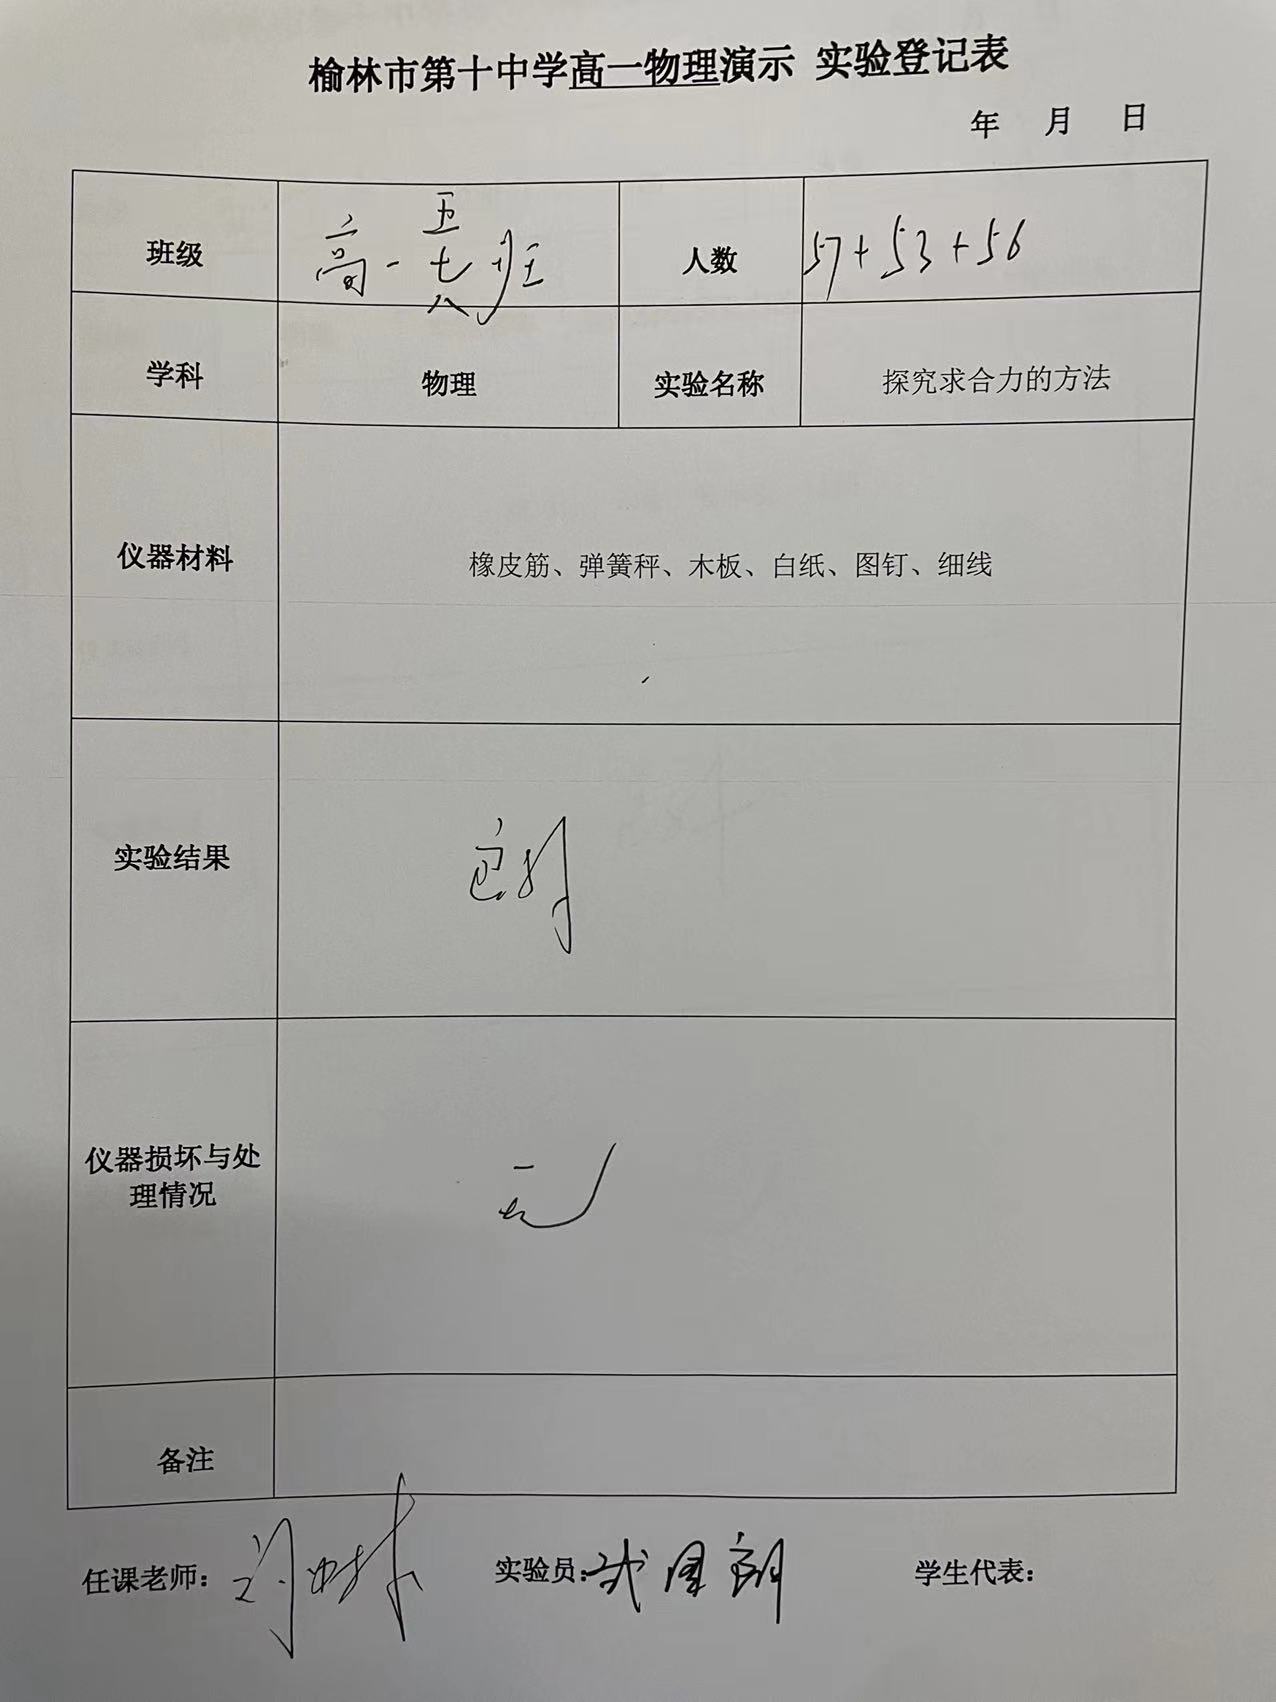 榆林市第十中学高一物理演示 实验登记表
年 月 日
班级 高一五七八班 人数 57+53+56
学科 物理 实验名称 探究求合力的方法
仪器材料 橡皮筋、弹簧秤、木板、白纸、图钉、细线
实验结果 良好
仪器损坏与处
理情况 无
备注
任课老师: 实验员: 学生代表: